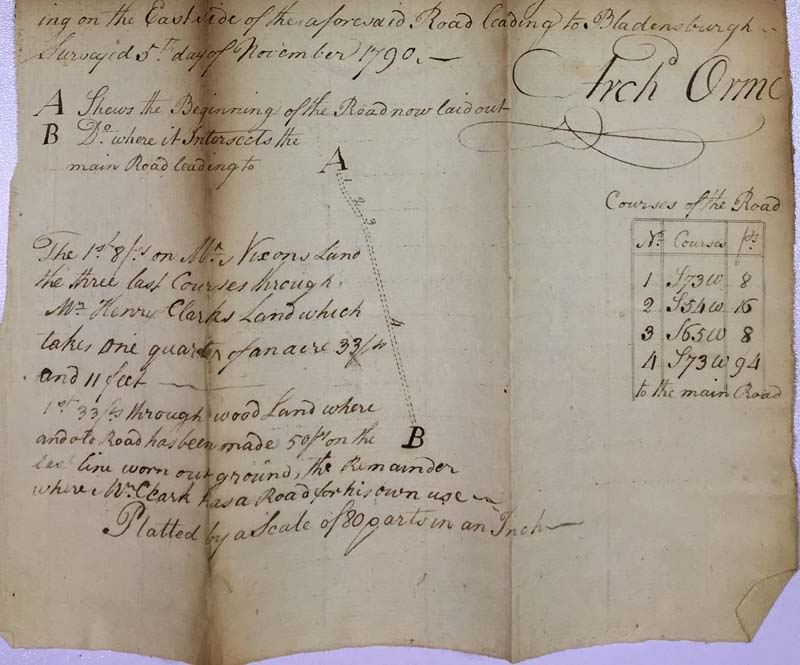 ing on the East side of the aforesaid Road leading to Bladensburgh
Surveyed 5th day of November 1790.
Archd Orme
A Shews the Beginning of the Road now laid out
B Do. where it Intersects the
main Road leading to
A
1
2
3
4
B
The 1st 8 ps on Mr. Nixons Land
the three last Courses through
Mr. Henry Clarks Land which
takes one quarter of an acre 33 ps
and 11 feet
1st 33 ps through wood Land where
and old Road has been made 50 ps on the
last line worn out ground, the Remainder
where Mr. Clark has a Road for his own use
Platted by a Scale of 80 parts in an Inch
Courses of the Road
No. Courses ps
1 S73W 8
2 S54W 16
3 S65W 8
4 S73W 94
to the main Road